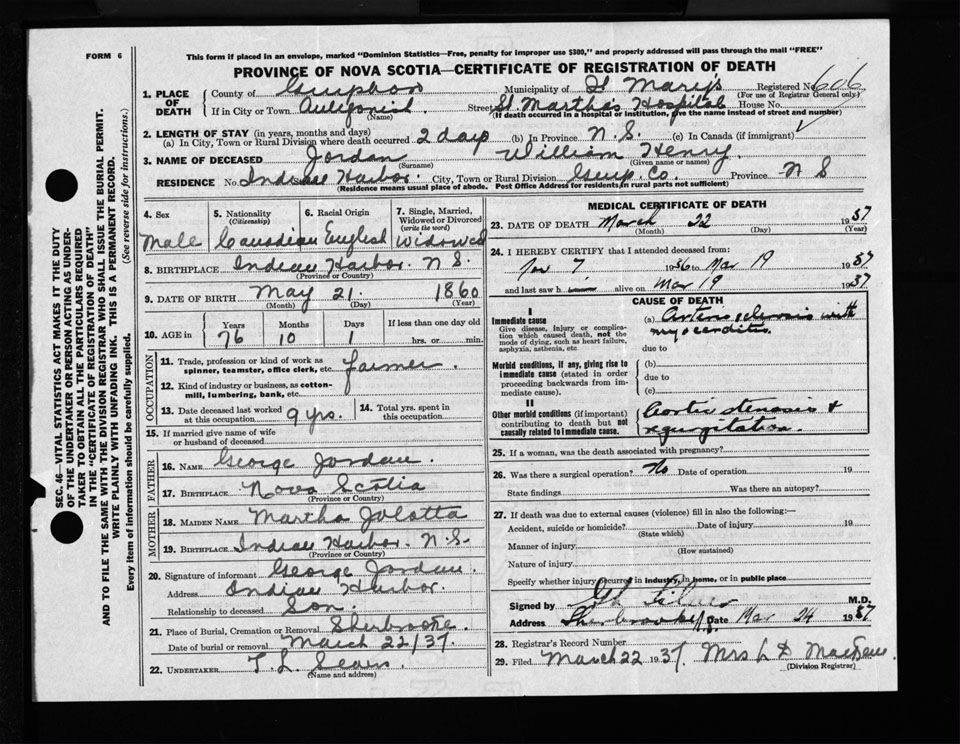 FORM 6
This form if placed in an envelope, marked "Dominion Statistics—Free, penalty for improper use $300," and properly addressed will pass through the mail "FREE"
PROVINCE OF NOVA SCOTIA—CERTIFICATE OF REGISTRATION OF DEATH
1. PLACE OF DEATH
County of Municipality of St Mary's Registered No. 606
(For use of Registrar General only)
If in City or Town Street St Martha's Hospital House No.
(Name) (If death occurred in a hospital or institution, give the name instead of street and number)
2. LENGTH OF STAY (in years, months and days)
(a) In City, Town or Rural Division where death occurred 2 days (b) In Province N. S. (c) In Canada (if immigrant)
3. NAME OF DECEASED Jordan William Henry
(Surname) (Given name or names)
RESIDENCE No. Indian Harbor City, Town or Rural Division Guys. Co. Province N S
(Residence means usual place of abode. Post Office Address for residents in rural parts not sufficient)
4. Sex 5. Nationality (Citizenship) 6. Racial Origin 7. Single, Married, Widowed or Divorced (write the word)
Male Canadian English Widowed
8. BIRTHPLACE Indian Harbor. N S.
(Province or Country)
9. DATE OF BIRTH May 21. 1860
(Month) (Day) (Year)
10. AGE in Years Months Days If less than one day old
76 10 1 hrs. or min.
OCCUPATION
11. Trade, profession or kind of work as spinner, teamster, office clerk, etc. farmer.
12. Kind of industry or business, as cotton-mill, lumbering, bank, etc.
13. Date deceased last worked at this occupation 9 yrs. 14. Total yrs. spent in this occupation
15. If married give name of wife or husband of deceased
FATHER
16. NAME George Jordan.
17. BIRTHPLACE Nova Scotia
(Province or Country)
MOTHER
18. MAIDEN NAME Martha Jolotta
19. BIRTHPLACE Indian Harbor. N.S.
(Province or Country)
20. Signature of informant George Jordan.
Address Indian Harbor.
Relationship to deceased Son.
21. Place of Burial, Cremation or Removal Sherbrooke.
Date of burial or removal March 22/37.
22. UNDERTAKER T. L. Sears
(Name and address)
MEDICAL CERTIFICATE OF DEATH
23. DATE OF DEATH March 22 1937
(Month) (Day) (Year)
24. I HEREBY CERTIFY that I attended deceased from:
7 1936 to Mar 19 1937
and last saw h im alive on Mar 19 1937.
CAUSE OF DEATH
I
Immediate cause
Give disease, injury or complication which caused death, not the mode of dying, such as heart failure, asphyxia, asthenia, etc.
(a) Arterio sclerosis with
myocarditis.
due to
Morbid conditions, if any, giving rise to immediate cause (stated in order proceeding backwards from immediate cause).
(b)
due to
(c)
II
Other morbid conditions (if important) contributing to death but not causally related to immediate cause.
Aortic stenosis &
regurgitation.
25. If a woman, was the death associated with pregnancy?
26. Was there a surgical operation? No Date of operation 19
State findings Was there an autopsy?
27. If death was due to external causes (violence) fill in also the following:—
Accident, suicide or homicide? Date of injury 19
(State which)
Manner of injury
(How sustained)
Nature of injury
Specify whether injury occurred in industry, in home, or in public place
Signed by M.D.
Address Sherbrooke N.S. Date Mar 24 1937
28. Registrar's Record Number
29. Filed March 22 1937. Mrs L D
(Division Registrar)
SEC. 46—VITAL STATISTICS ACT MAKES IT THE DUTY
OF THE UNDERTAKER OR PERSON ACTING AS UNDER-
TAKER TO OBTAIN ALL THE PARTICULARS REQUIRED
IN THE "CERTIFICATE OF REGISTRATION OF DEATH"
AND TO FILE THE SAME WITH THE DIVISION REGISTRAR WHO SHALL ISSUE THE BURIAL PERMIT.
WRITE PLAINLY WITH UNFADING INK. THIS IS A PERMANENT RECORD.
Every item of information should be carefully supplied. (See reverse side for instructions.)